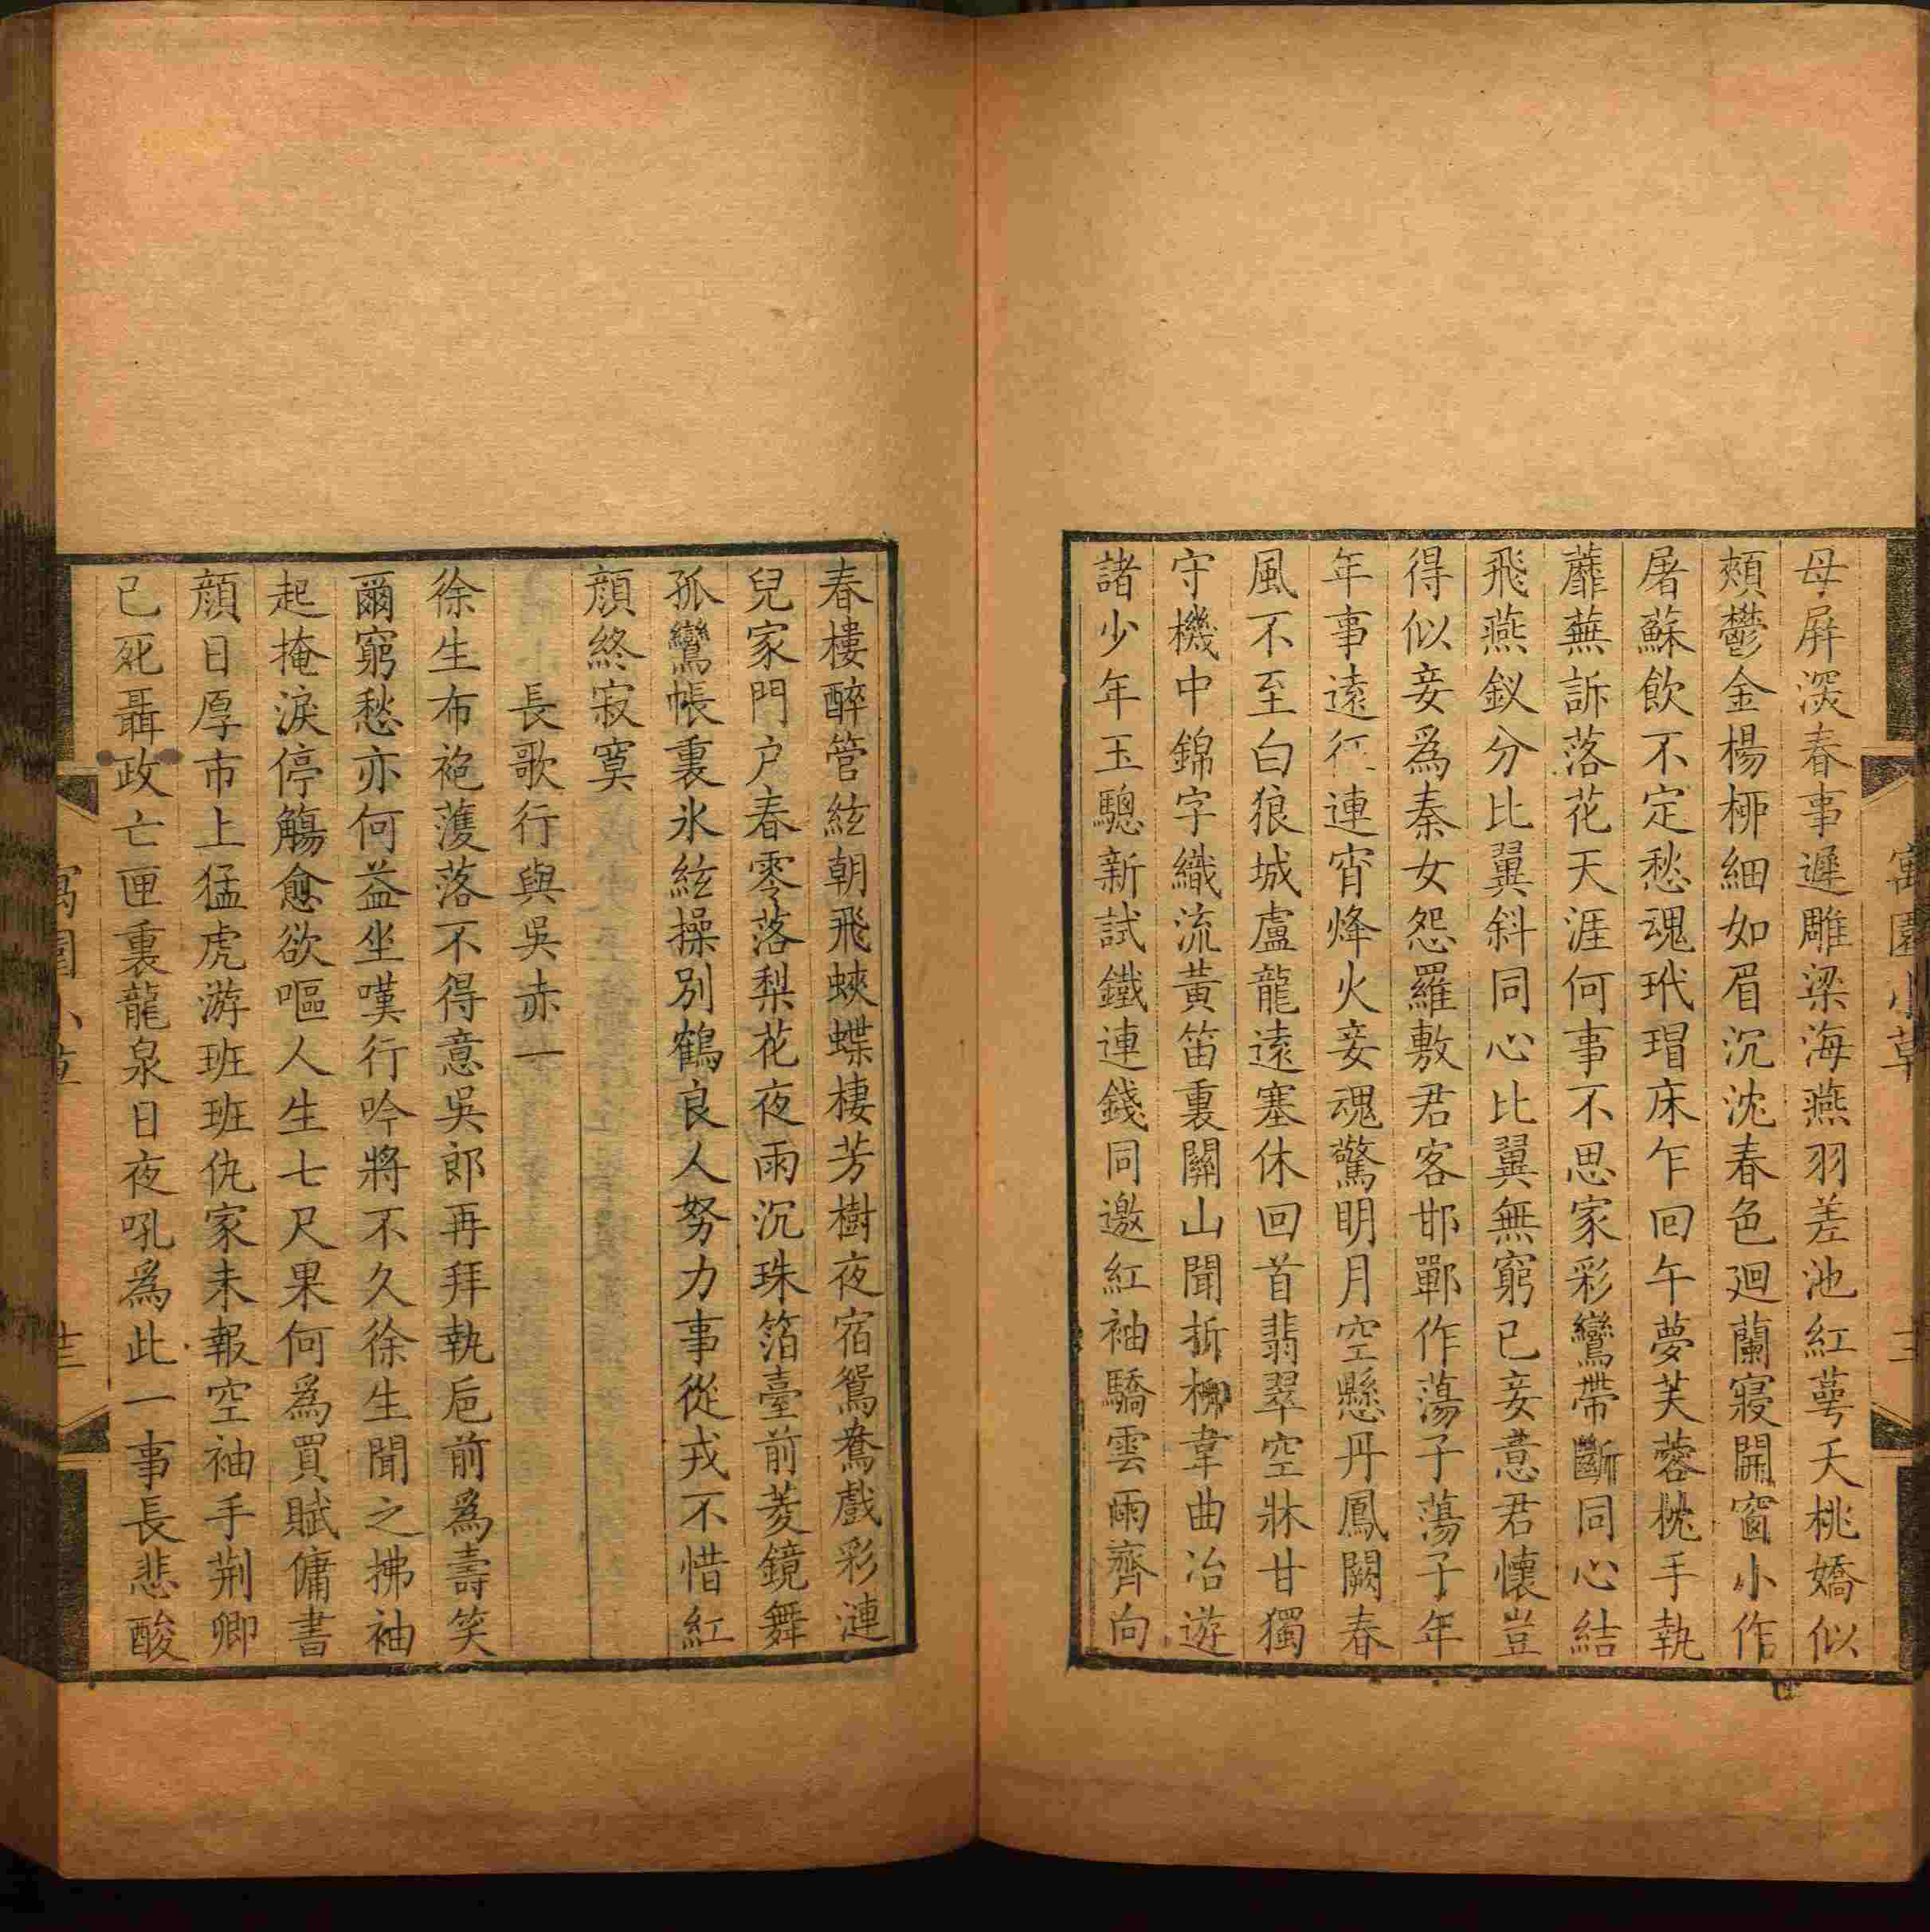 寓園小草
母屛淡春事遲雕梁海燕羽差池紅萼夭桃嬌似
頰鬱金楊桺細如眉沉沈春色廻蘭寢開窗小作
屠蘇飲不定愁魂玳瑁床乍回午夢芙蓉枕手執
蘼蕪訴落花天涯何事不思家彩鸞帶斷同心結
飛燕釵分比翼斜同心比翼無窮已妾意君懷豈
得似妾爲秦女怨羅敷君客邯鄲作蕩子蕩子年
年事遠征連宵烽火妾魂驚明月空懸丹鳳闕春
風不至白狼城盧龍遠塞休回首翡翠空牀甘獨
守機中錦字織流黃笛裏關山聞折柳韋曲冶遊
諸少年玉驄新試鐵連錢同邀紅袖驕雲雨齊向
春樓醉管絃朝飛蛺蝶棲芳樹夜宿鴛鴦戲彩漣
兒家門户春零落梨花夜雨沉珠箔臺前菱鏡舞
孤鸞帳裏氷絃操別鶴良人努力事從戎不惜紅
顔終寂寞
長歌行與吳赤一
徐生布袍濩落不得意吳郎再拜執巵前爲壽笑
爾窮愁亦何益坐嘆行吟將不久徐生聞之拂袖
起掩淚停觴愈欲嘔人生七尺果何爲買賦傭書
顔日厚市上猛虎游班班仇家未報空袖手荆卿
已死聶政亡匣裏龍泉日夜吼爲此一事長悲酸